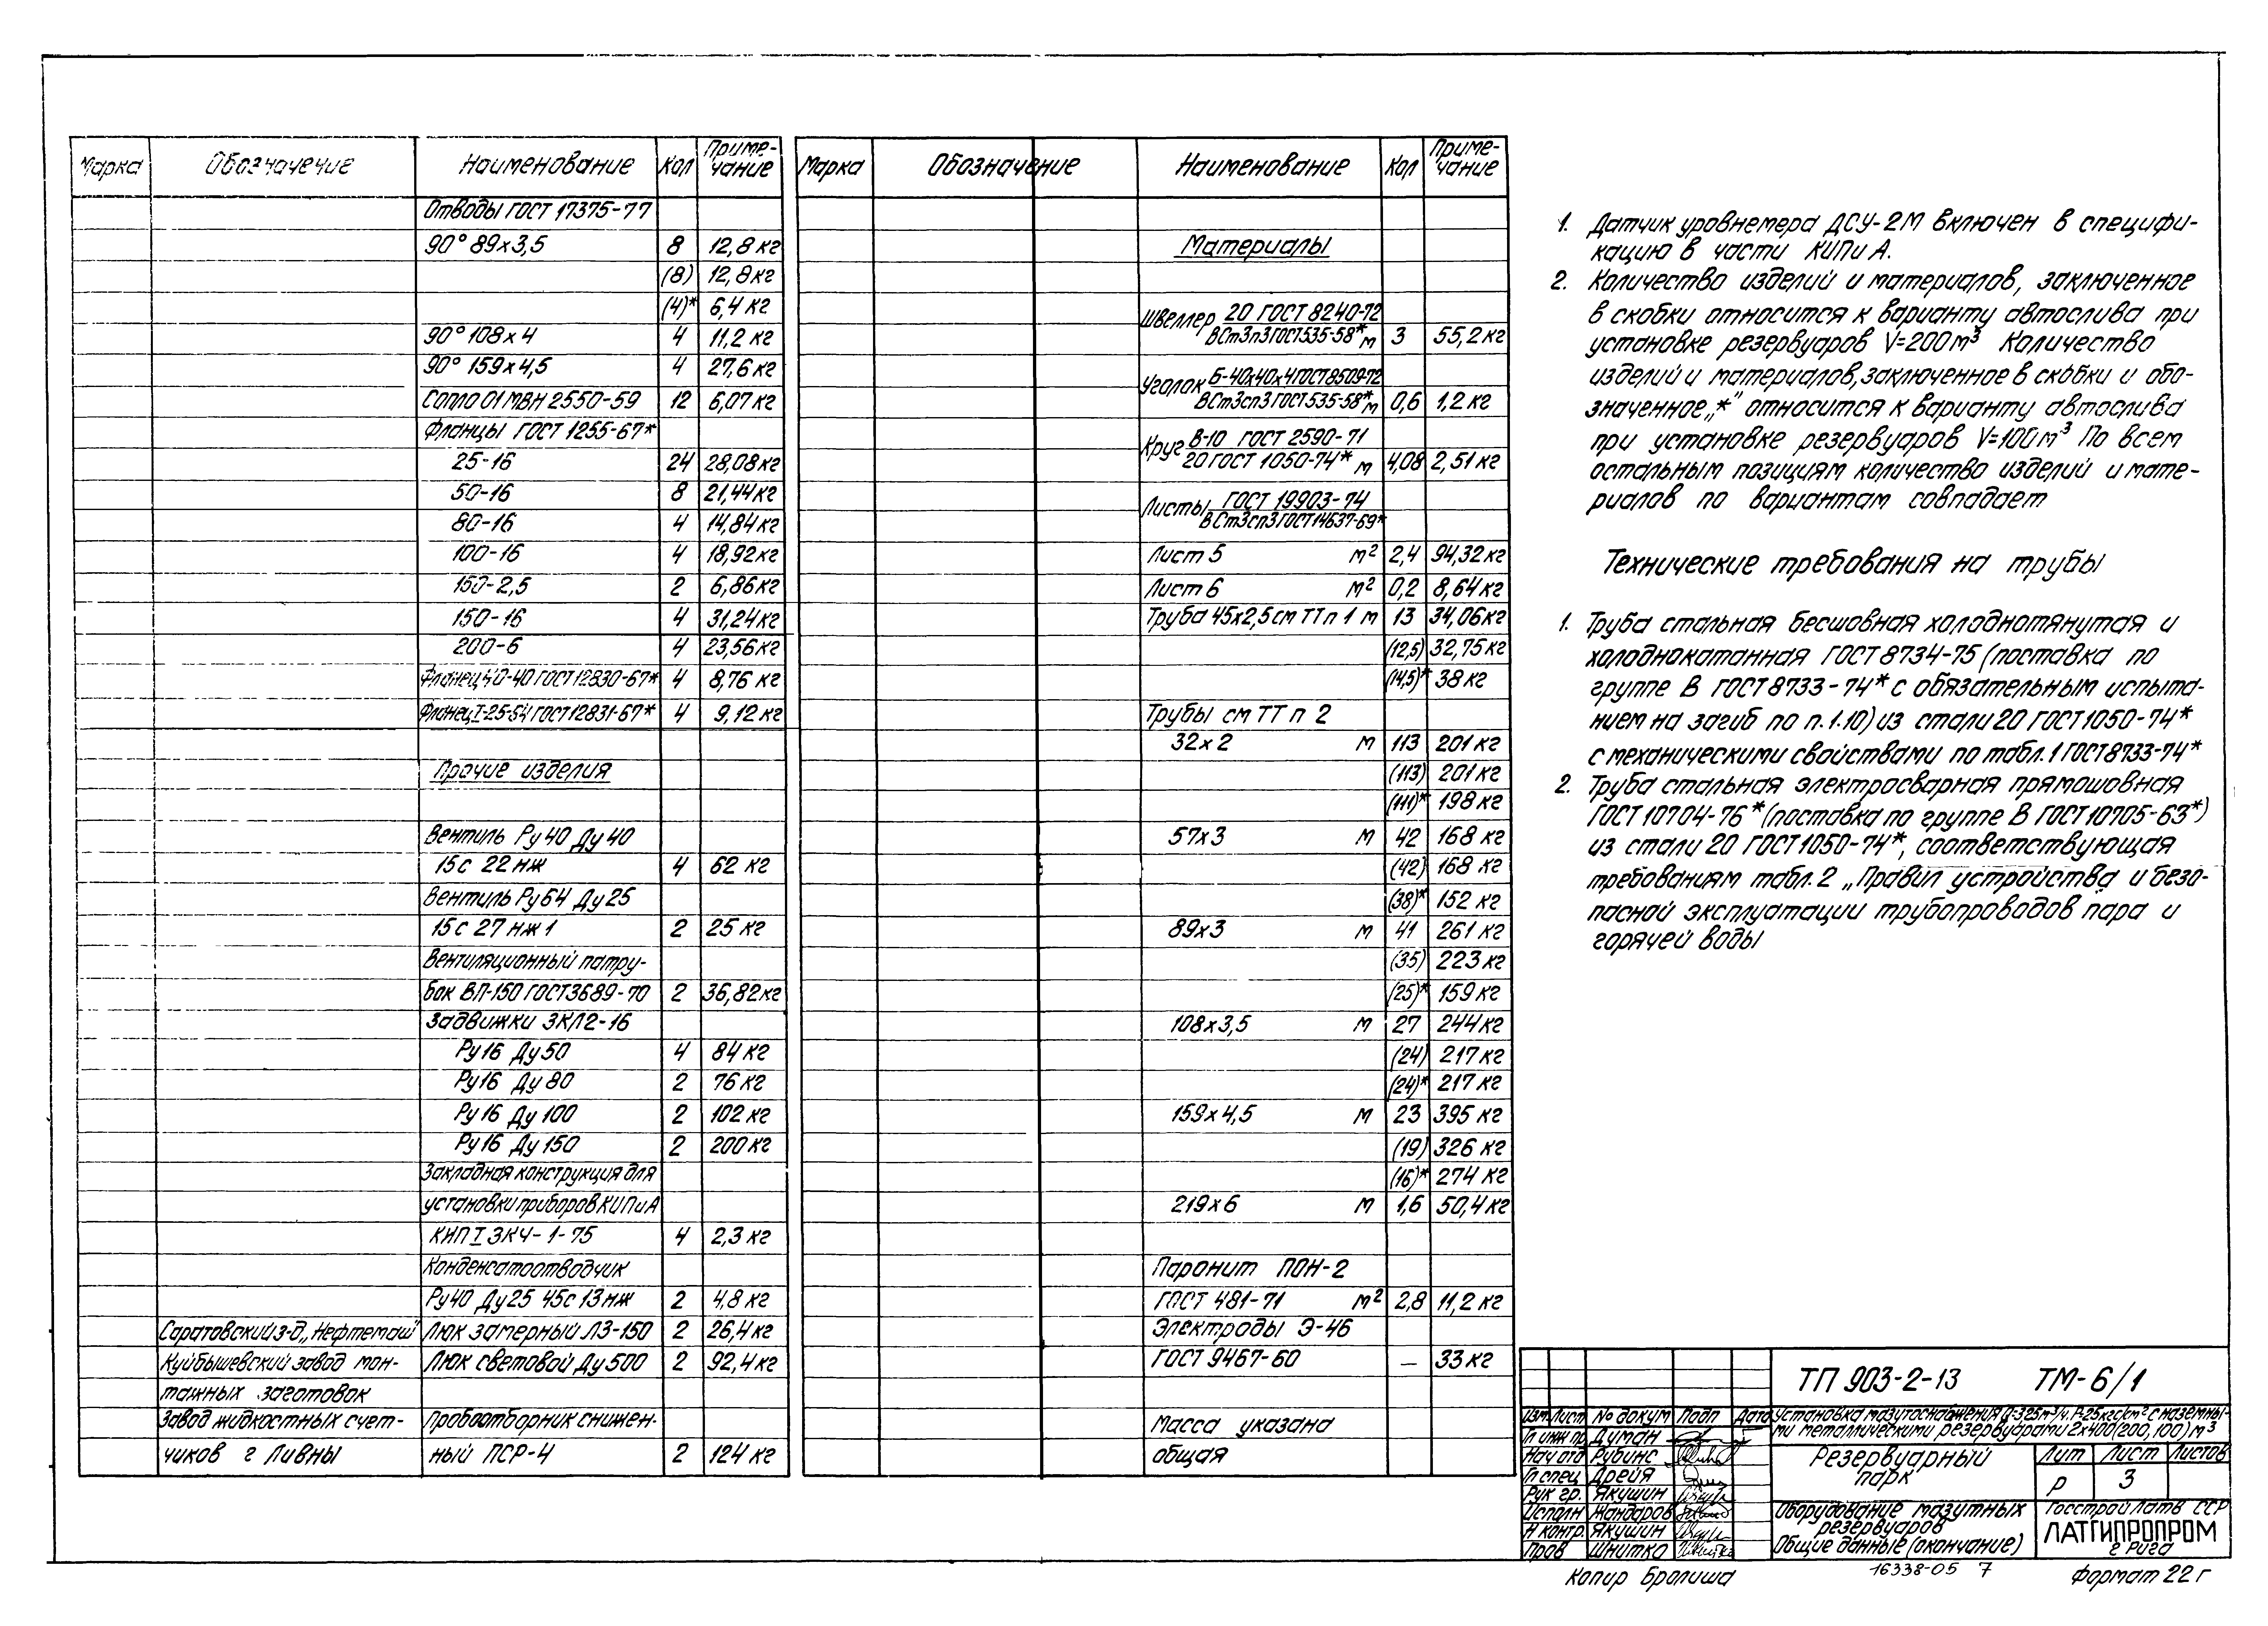 Марка Обозначение Наименование Кол Приме-чание
Отводы ГОСТ 17375-77
90° 89х3,5 8 12,8 кг
(8) 12,8 кг
(4)* 6,4 кг
90° 108х4 4 11,2 кг
90° 159х4,5 4 27,6 кг
Сопло 01 МВН 2550-59 12 6,07 кг
Фланцы ГОСТ 1255-67*
25-16 24 28,08 кг
50-16 8 21,44 кг
80-16 4 14,84 кг
100-16 4 18,92 кг
150-2,5 2 6,86 кг
150-16 4 31,24 кг
200-6 4 23,56 кг
Фланец 40-40 ГОСТ 12830-67* 4 8,76 кг
Фланец I-25-64 ГОСТ 12831-67* 4 9,12 кг
Прочие изделия
Вентиль Ру 40 Ду 40
15с 22 нж 4 62 кг
Вентиль Ру 64 Ду 25
15с 27 нж 1 2 25 кг
Вентиляционный патру-
бок ВП-150 ГОСТ 3689-70 2 36,82 кг
Задвижки ЗКЛ2-16
Ру 16 Ду 50 4 84 кг
Ру 16 Ду 80 2 76 кг
Ру 16 Ду 100 2 102 кг
Ру 16 Ду 150 2 200 кг
Закладная конструкция для
установки приборов КИПиА
КИП I ЗКЧ-1-75 4 2,3 кг
Конденсатоотводчик
Ру 40 Ду 25 45с 13 нж 2 4,8 кг
Саратовский з-д „Нефтемаш" Люк замерный ЛЗ-150 2 26,4 кг
Куйбышевский завод мон- Люк световой Ду 500 2 92,4 кг
тажных заготовок
Завод жидкостных счет- Пробоотборник снижен-
чиков г Ливны ный ПСР-4 2 124 кг
Марка Обозначение Наименование Кол Приме-чание
Материалы
Швеллер 20 ГОСТ 8240-72
ВСт3п3 ГОСТ 535-58* м 3 55,2 кг
Уголок Б-40х40х4 ГОСТ 8509-72
ВСт3сп3 ГОСТ 535-58* м 0,6 1,2 кг
Круг В-10 ГОСТ 2590-71
20 ГОСТ 1050-74* м 4,08 2,51 кг
Листы ГОСТ 19903-74
ВСт3сп3 ГОСТ 14637-69*
Лист 5 м² 2,4 94,32 кг
Лист 6 м² 0,2 8,64 кг
Труба 45х2,5 см ТТ п 1 м 13 34,06 кг
(12,5) 32,75 кг
(14,5)* 38 кг
Трубы см ТТ п 2
32х2 м 113 201 кг
(113) 201 кг
(111)* 198 кг
57х3 м 42 168 кг
(42) 168 кг
(38)* 152 кг
89х3 м 41 261 кг
(35) 223 кг
(25)* 159 кг
108х3,5 м 27 244 кг
(24) 217 кг
(24)* 217 кг
159х4,5 м 23 395 кг
(19) 326 кг
(16)* 274 кг
219х6 м 1,6 50,4 кг
Паронит ПОН-2
ГОСТ 481-71 м² 2,8 11,2 кг
Электроды Э-46
ГОСТ 9467-60 — 33 кг
Масса указана
общая
1. Датчик уровнемера ДСУ-2М включен в специфи-
кацию в части КИПиА.
2. Количество изделий и материалов, заключенное
в скобки относится к варианту автослива при
установке резервуаров V=200м³ Количество
изделий и материалов, заключенное в скобки и обо-
значенное „*" относится к варианту автослива
при установке резервуаров V=100м³ По всем
остальным позициям количество изделий и мате-
риалов по вариантам совпадает
Технические требования на трубы
1. Труба стальная бесшовная холоднотянутая и
холоднокатанная ГОСТ 8734-75 (поставка по
группе В ГОСТ 8733-74* с обязательным испыта-
нием на загиб по п. 1.10) из стали 20 ГОСТ 1050-74*
с механическими свойствами по табл. 1 ГОСТ 8733-74*
2. Труба стальная электросварная прямошовная
ГОСТ 10704-76* (поставка по группе В ГОСТ 10705-63*)
из стали 20 ГОСТ 1050-74*, соответствующая
требованиям табл. 2 „Правил устройства и безо-
пасной эксплуатации трубопроводов пара и
горячей воды
ТП 903-2-13 ТМ-6/1
Изм Лист № докум Подп Дата
Установка мазутоснабжения Q=3,25м³/ч. Р=25кгс/см² с наземны-
ми металлическими резервуарами 2х400(200,100) м³
Гл инж пр Думан
Нач отд Рубинс
Гл спец Дрейя
Рук гр. Якушин
Исполн Жандаров
Н контр. Якушин
Пров Шнитко
Резервуарный
парк
Лит Лист Листов
Р 3
Оборудование мазутных
резервуаров
Общие данные (окончание)
Госстрой Латв ССР
ЛАТГИПРОПРОМ
г Рига
Копир Бролиша 16338-05 7 Формат 22 г